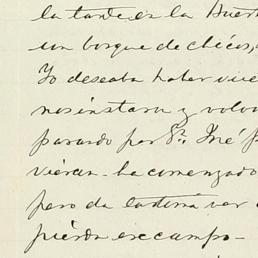 la tarde en la Huerta
un bosque de chicos,
Yo deseaba haber
nos instara y volv
pasando por Sn. José
vieran - ha comenzado
pero da lastima ver
pierda ese campo -